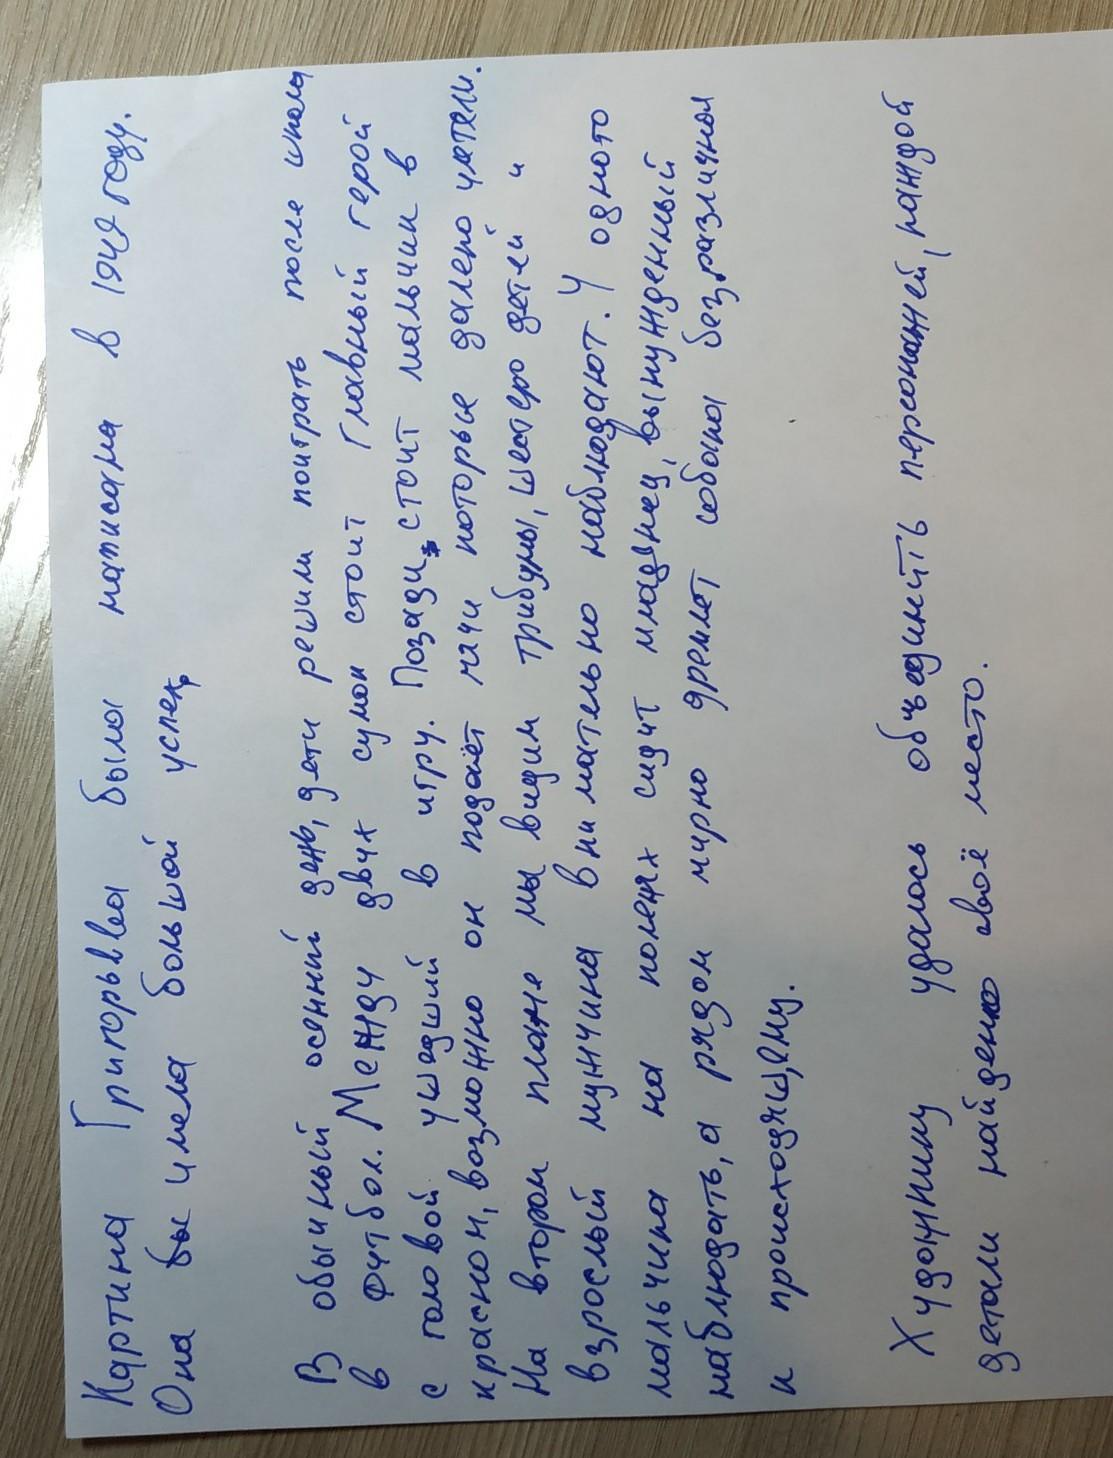 Картина Григорьева была написана в 1949 году.
Она имела большой успех
В обычный осенний день, дети решили поиграть после школы
в футбол. Между двух сумок стоит главный герой
с головой ушедший в игру. Позади стоит мальчик в
красном, возможно он подаёт мячи которые далеко улетели.
На втором плане мы видим трибуны, шестеро детей и
взрослый мужчина внимательно наблюдают. У одного
мальчика на коленях сидит младенец, вынужденный
наблюдать, а рядом мирно дремлет собака безразличная
к происходящему.
Художнику удалось объединить персонажей, каждой
детали найдено своё место.